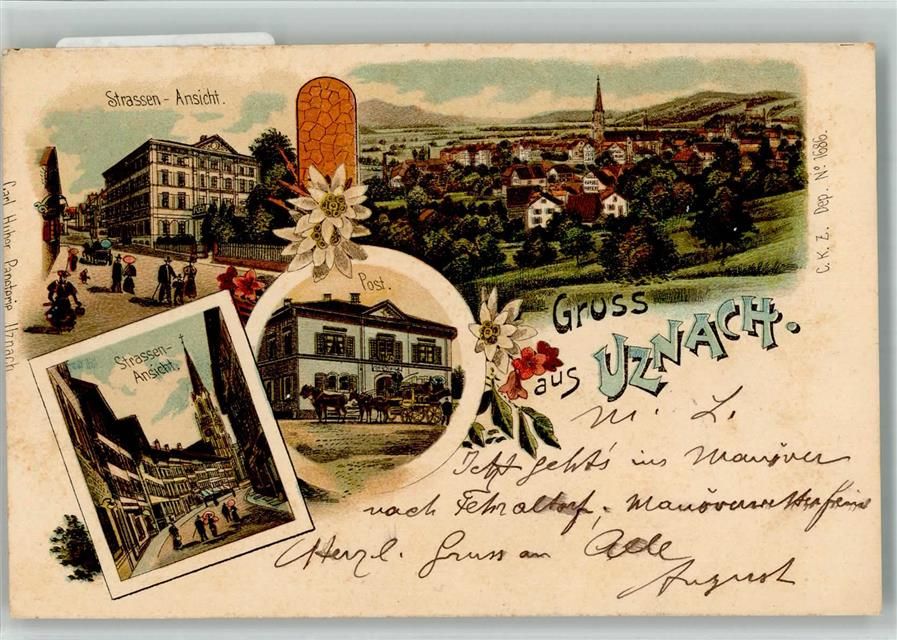 Strassen - Ansicht.
Post.
Strassen-
Ansicht.
Gruss
aus UZNACH.
Carl Huber Papeterie Uznach
C. K. Z. Dep. No 1686.
M. L.
Jetzt geht's ins Manöver
nach Fehraltorf, Manöverwetter
Herzl. Gruss an Alle
August